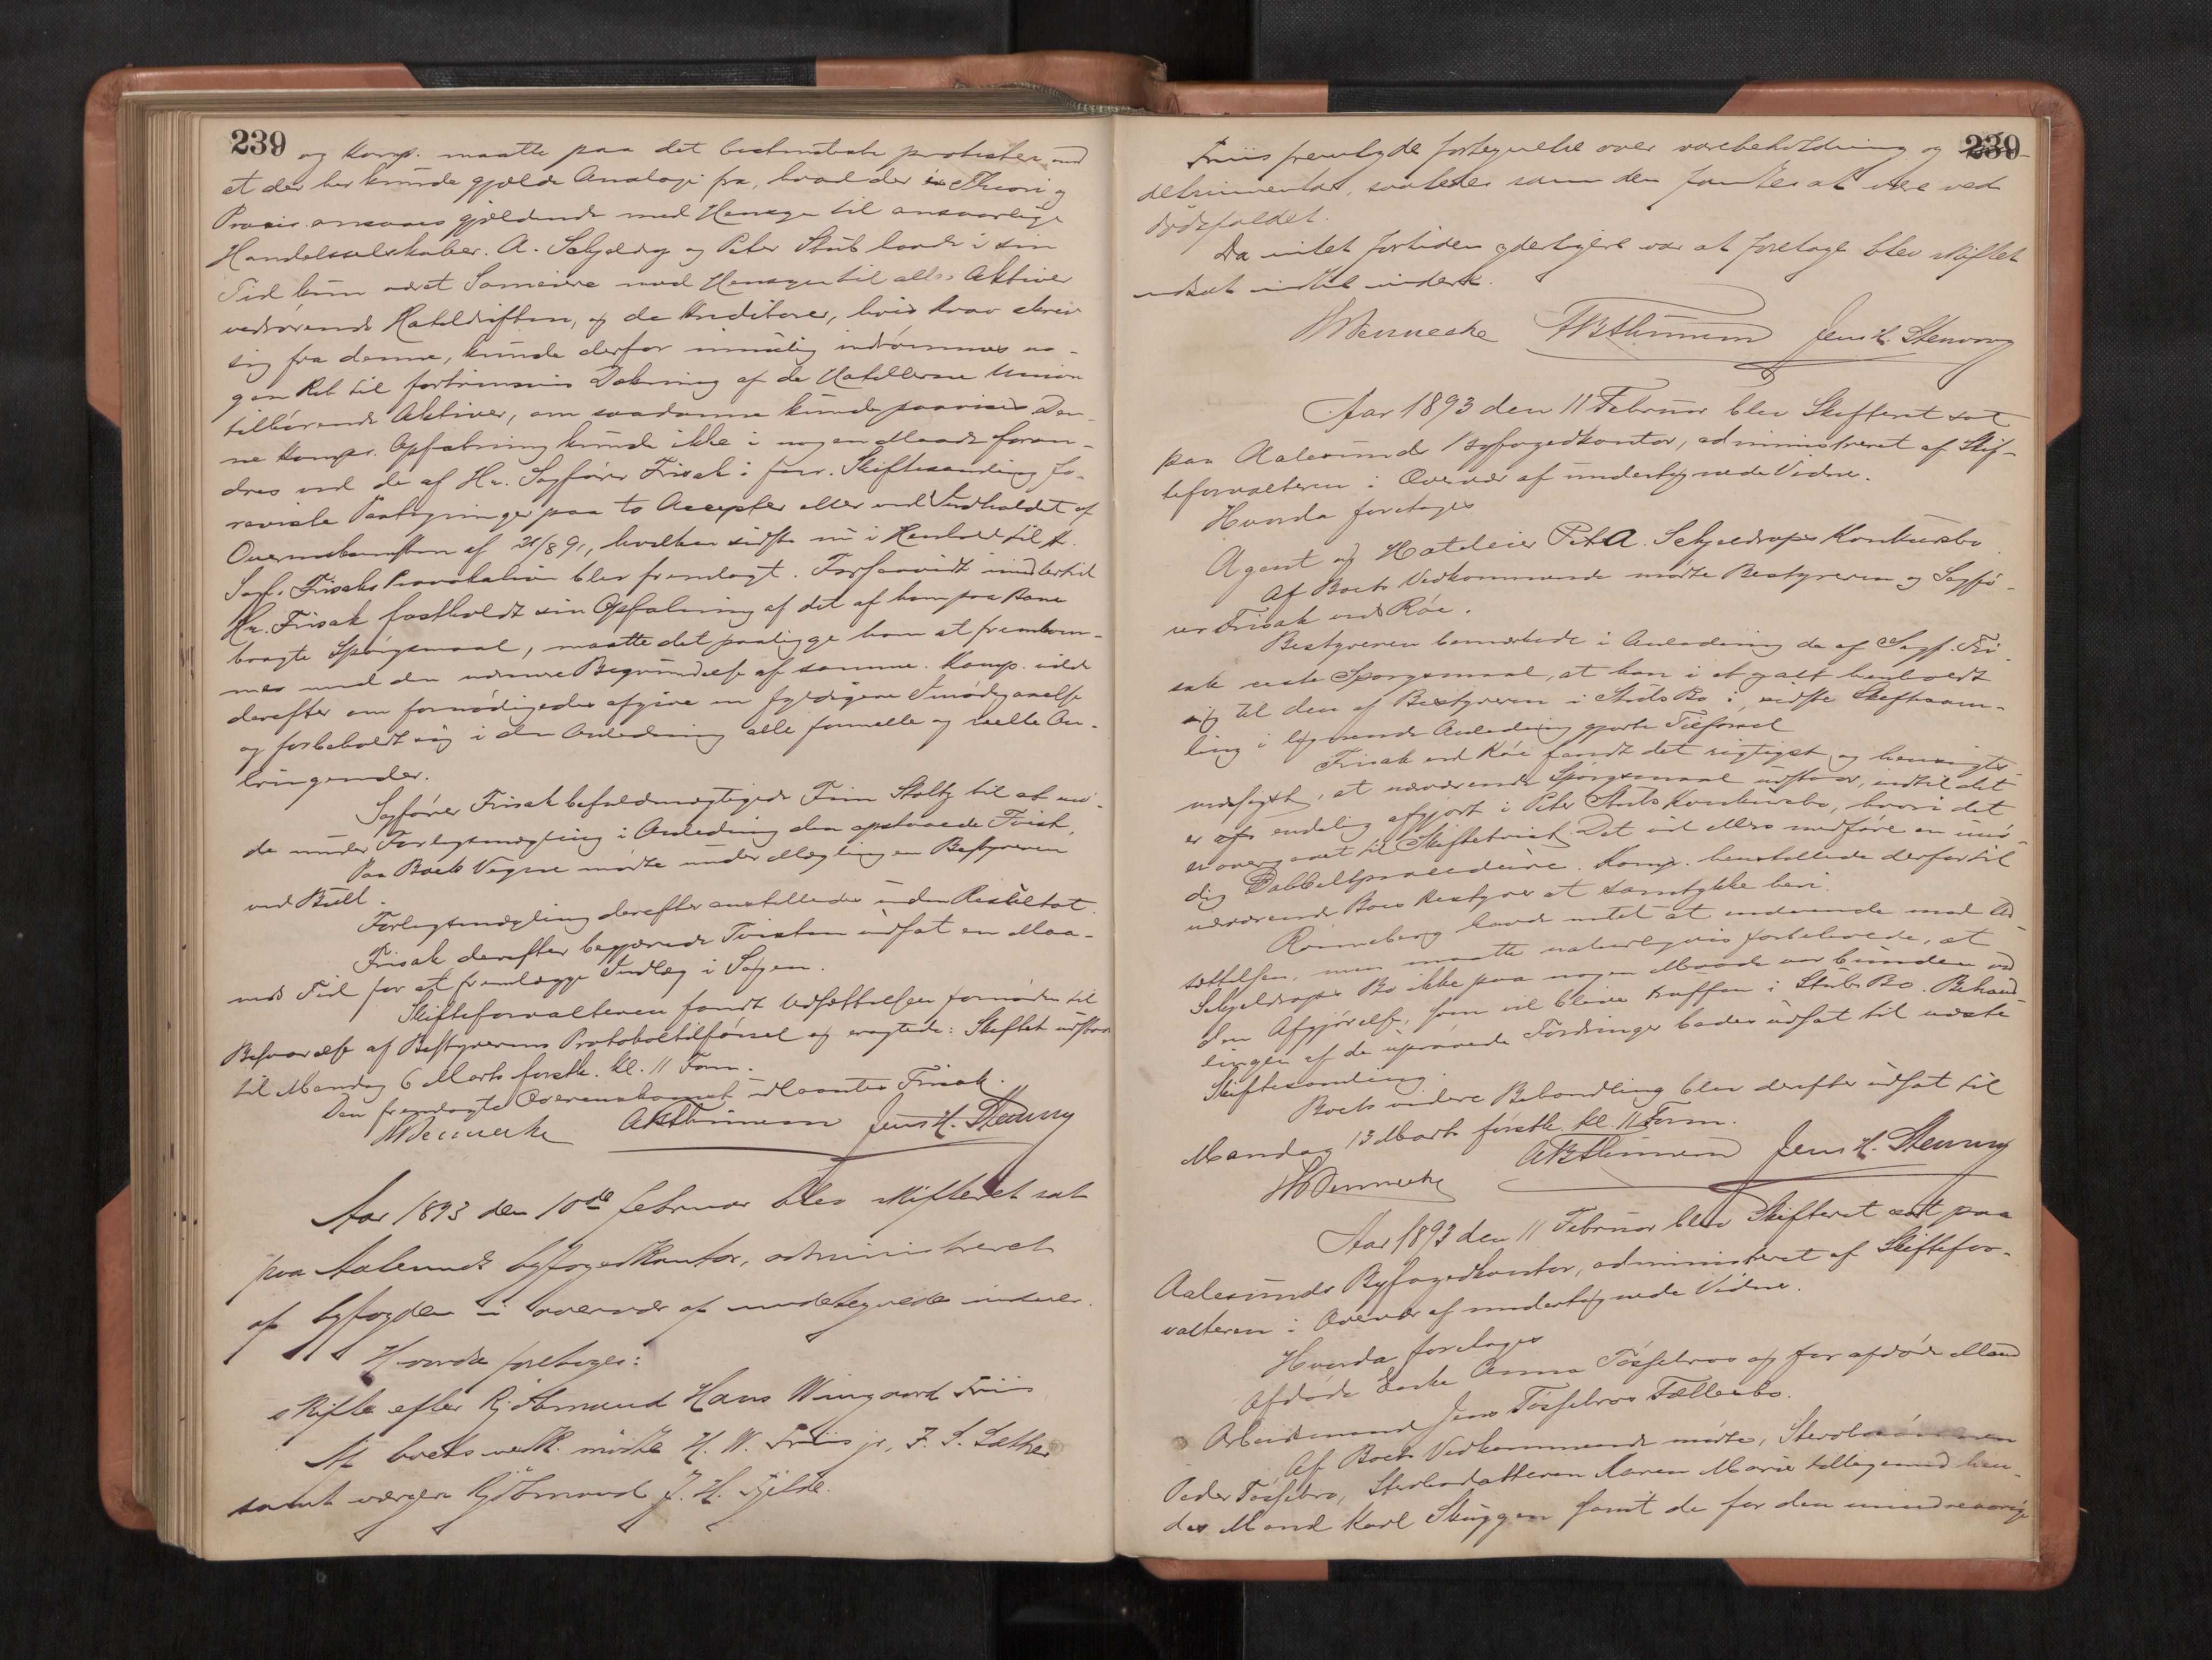 239
og Komp. maatte paa det bestemteste protestere mod
at der her kunde gjælde Analogi fra, hvad der i Theori og
Praxis ansaaes gjældende med Hensyn til ansvarlige
Handelsselskaber. A. Schjeldrop og Peter Stub havde i sin
Tid kun været Sameiere med Hensyn til alle Aktiver
vedrørende Hoteldriften, og de Kreditorer, hvis Krav skrev
sig fra denne, kunde derfor umulig indrømmes no-
gen Ret til fortrinsvis Dækning af de Hotellerne Union
tilhørende Aktiver, om saadanne kunde paavises. Den-
ne Komps. Opfatning kunde ikke i nogen Maade foran-
dres ved de af Hr. Sagfører Frisak i forr. Skiftesamling fo-
reviste Paategninger paa to Accepter eller ved Indholdet af
Overenskomsten af 21/8 91, hvilken sidste nu i Henhold til
Sagf. Frisaks Provokation blev fremlagt. Forsaavidt imidlertid
Hr. Frisak fastholdt sin Opfatning af det af ham paa Bane
bragte Spørgsmaal, maatte det paaligge ham at fremkom-
me med den nærmere Begrundelse af samme. Komp. vilde
derefter om fornødiges afgive en fyldigere Imødegaaelse
og forbeholdt sig i den Anledning alle formelle og reelle An-
bringender.
Sagfører Frisak befuldmægtigede Finn Stoltz til at mø-
de under Forligsmægling i Anledning den opstaaede Tvist.
Paa Boets Vegne mødte under Mæglingen Bestyreren
ved Bull.
Forligsmægling derefter anstilledes uden Resultat.
Frisak derefter begjærede Tvisten udsat en Maa-
neds Tid for at fremlægge Indlæg i Sagen.
Skifteforvalteren fandt Udsættelsen fornøden til
Besvarelse af Bestyrerens Protokoltilførsel og eragtede: Skiftet udstaar
til Mandag 6 Marts førstk. Kl. 11 Form.
Den fremlagte Overenskomst udlaantes Frisak.
HWennecke AKThinnem Jens H. Stenvig
Aar 1893 den 10de februar blev skifteret sat
paa Aalesunds byfogedkontor, administreret
af byfogden i overvær af undertegnede vidner.
Hvorda foretoges:
skifte efter Kjøbmand Hans Wingaard Friis
Af boets vedk. mødte H. W. Friis jr, J. S. Sæther
samt værgen Kjøbmand J. H. Fjelde.
239
Friis fremlagde fortegnelse over varebeholdning og
debrimentar, saaledes som den fantes at være ved
dødsfaldet.
Da intet fortiden yderligere var at foretage blev skiftet
udsat indtil videre.
HWennecke AKThinnem Jens H. Stenvig
Aar 1893 den 11 Februar blev Skifteret sat
paa Aalesunds Byfogedkontor, administreret af Skif-
teforvalteren i Overvær af undertegnede Vidne.
Hvorda foretoges
Agent og Hoteleier Pet. A. Schjeldrops Konkursbo
Af Boets Vedkommende mødte Bestyreren og Sagfø-
rer Frisak ved Röe.
Bestyreren bemærkede i Anledning de af Sagf. Fri-
sak reiste Spørgsmaal, at han i et og alt henholdt
sig til den af Bestyreren i Stubs Bo i sidste Skiftesam-
ling i lignende Anledning gjorte Tilførsel
Frisak ved Röe fandt det rigtigst og hensigts-
mæssigst, at nærværende Spørgsmaal udstaar, indtil det
er endelig afgjort i Peter Stubs Konkursbo, hvori det
er overgaaet til Skiftetvist. Det vil ellers medføre en unø-
dig Dobbeltprocedure. Komp. henstillede derfor til
nærværende Boes Bestyrer at samtykke heri.
Rønneberg havde intet at indvende mod Ud-
sættelsen, men maatte naturligvis forbeholde, at
Schjeldrops Bo ikke paa nogen Maade var bunden ved
den Afgjørelse, som vil blive truffen i Stubs Bo. Behand-
lingen af de uprøvede Fordringer bedes udsat til næste
Skiftesamling.
Boets videre Behandling blev derefter udsat til
Mandag 13 Marts førstk. Kl. 11 Form.
HWennecke AKThinnem Jens H. Stenvig
Aar 1893 den 11 Februar blev Skifteret sat paa
Aalesunds Byfogedkontor, administreret af Skiftefor-
valteren i Overvær af undertegnede Vidne.
Hvorda foretoges
Afdøde Enke Anna Tøssebros og før afdøde Mand
Arbeidsmand Jens Tøssebros Fællesbo.
Af Boets Vedkommende mødte,
Peder Tøssebro, Sterbodatteren Karen Marie tilligemed hen-
des Mand Karl Skuggen samt de for den mindreaarige